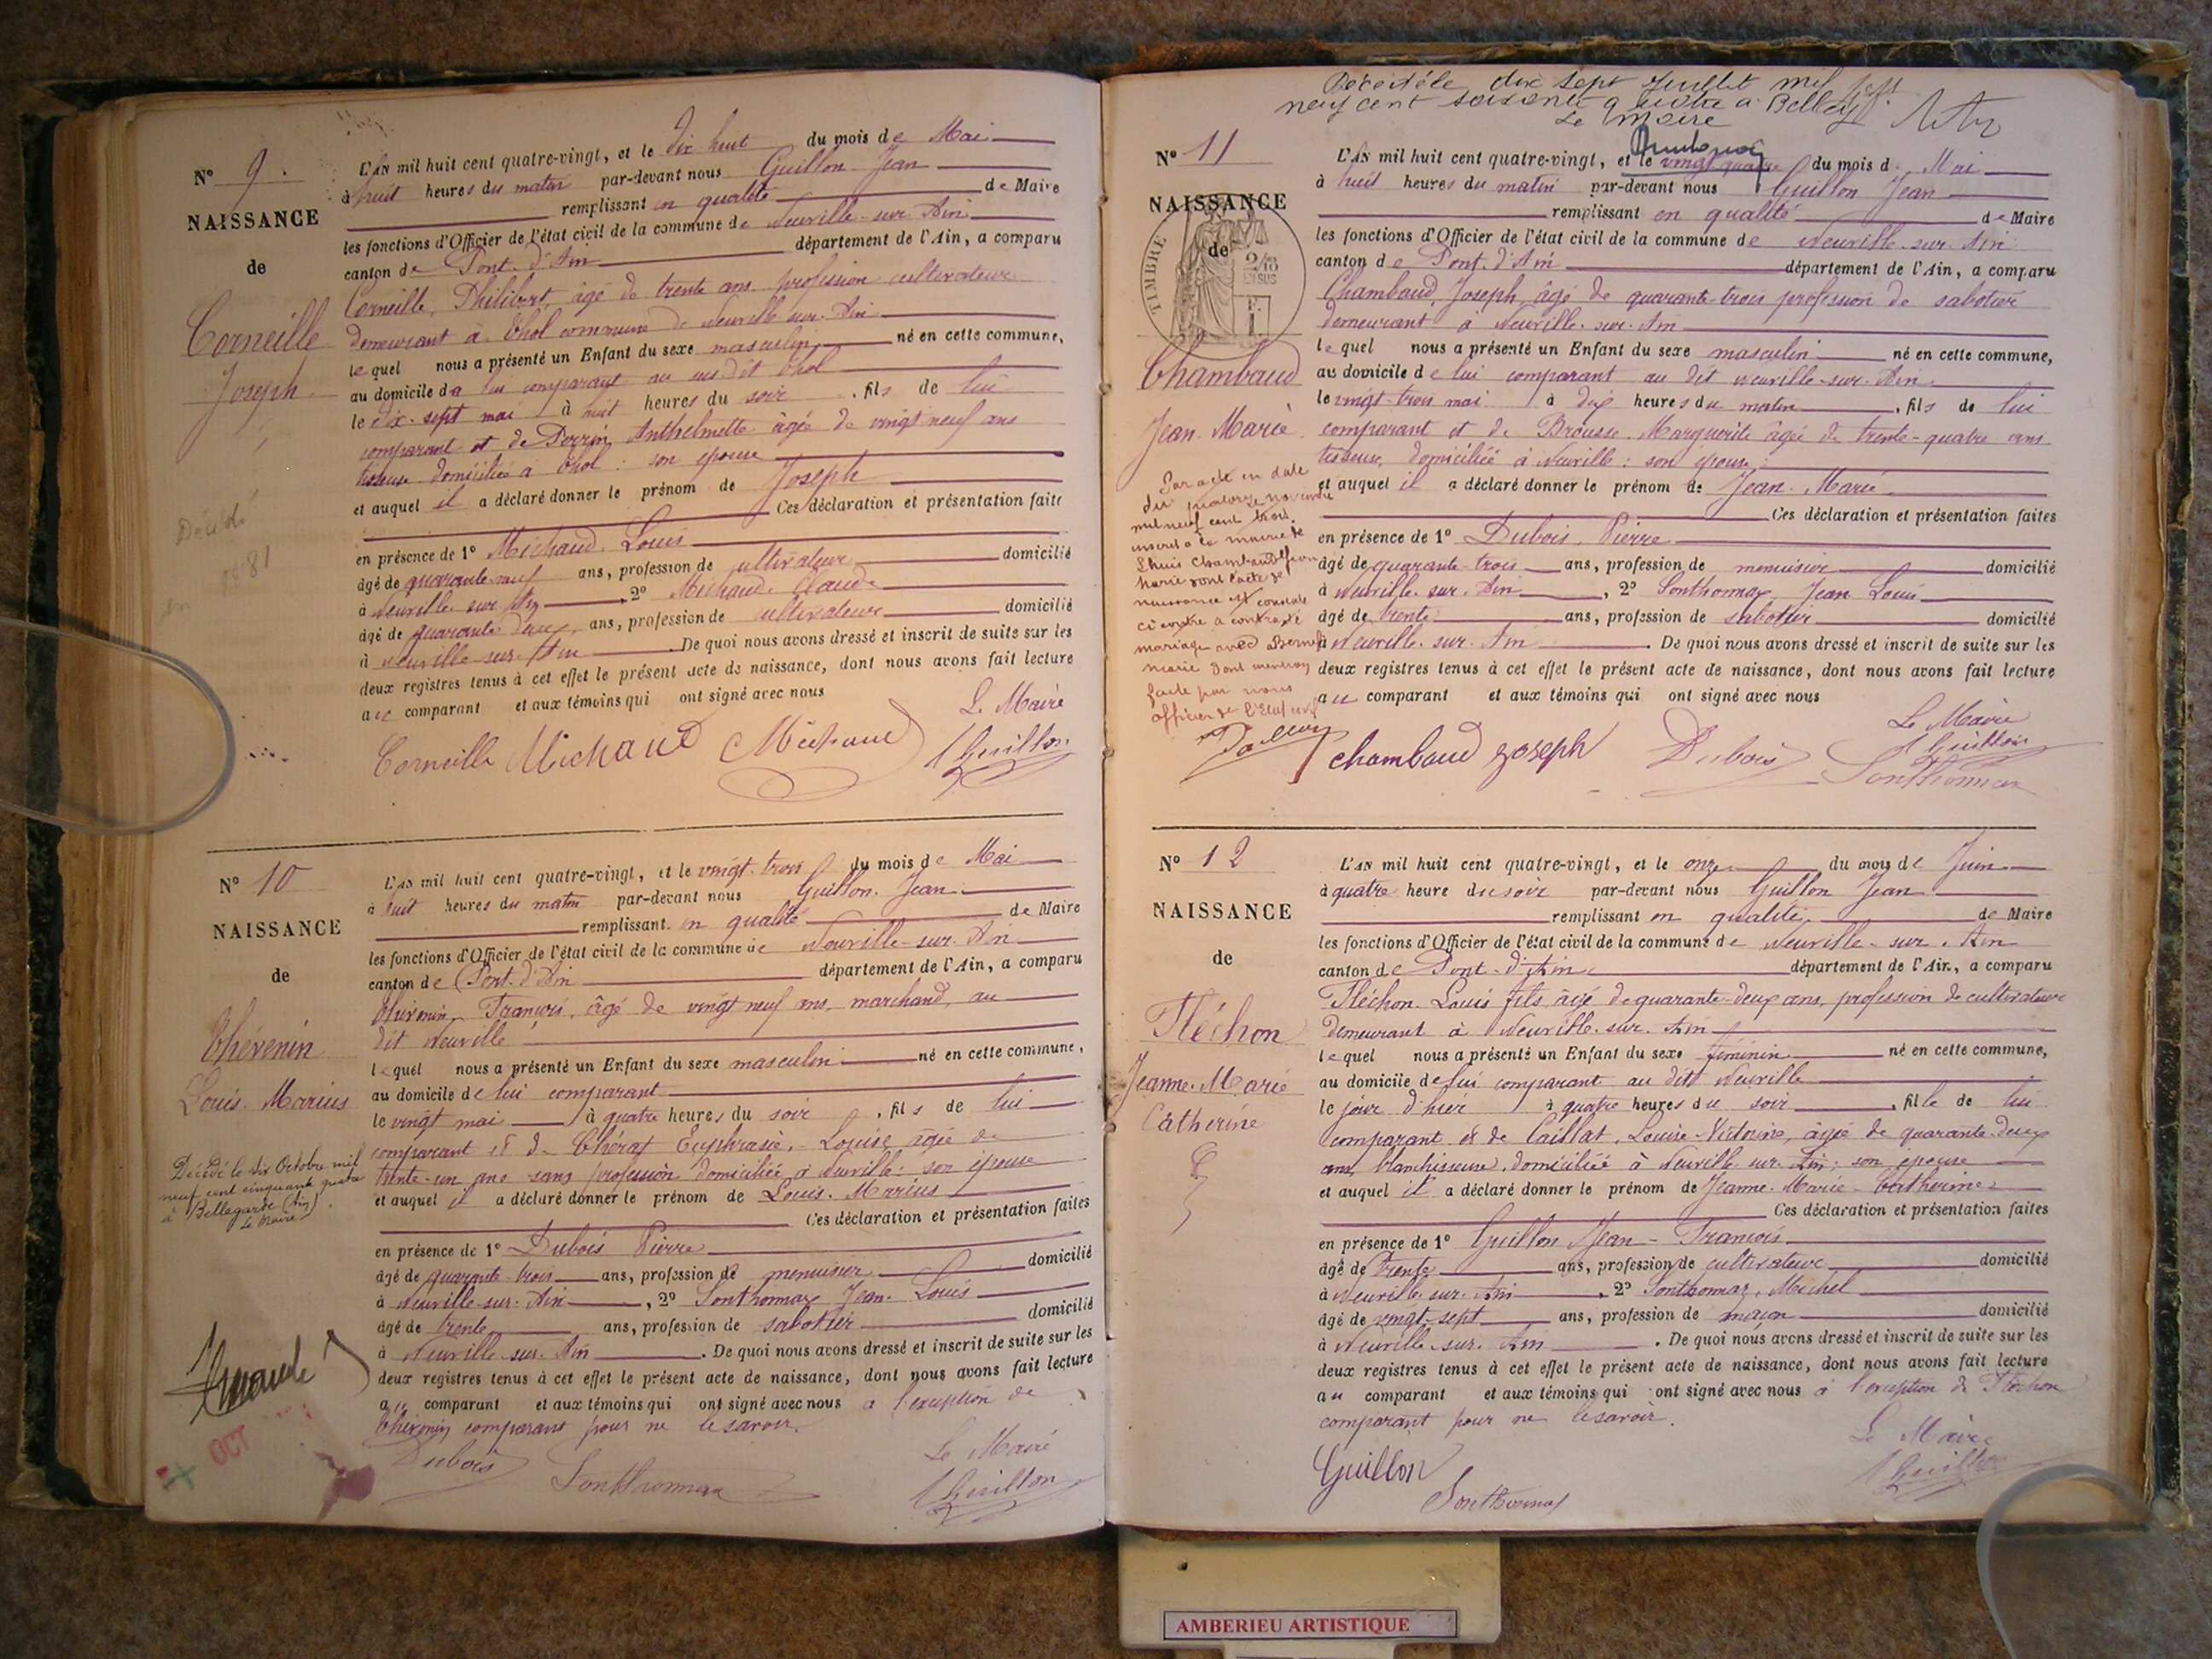 N° 9.
NAISSANCE
de
Corneille
Joseph
Décédé
en 1881
L'AN mil huit cent quatre-vingt, et le dix huit du mois de Mai
à huit heures du matin par-devant nous Guillon Jean
remplissant en qualité de Maire
les fonctions d'Officier de l'état civil de la commune de Neuville-sur-Ain
canton de Pont-d'Ain département de l'Ain, a comparu
Corneille, Philibert, âgé de trente ans profession cultivateur
demeurant à Thol commune de Neuville sur-Ain
lequel nous a présenté un Enfant du sexe masculin né en cette commune,
au domicile de lui comparant au susdit Thol
le dix-sept mai à huit heures du soir, fils de lui
comparant et de Perrin, Anthelmette âgée de vingt neuf ans
tisseuse domiciliée à Thol : son épouse
et auquel il a déclaré donner le prénom de Joseph
Ces déclaration et présentation faite
en présence de 1° Michaud. Louis
âgé de quarante-neuf ans, profession de cultivateur domicilié
à Neuville-sur-Ain 2° Michaud. Claude
âgé de quarante deux, ans, profession de cultivateur domicilié
à Neuville-sur-Ain. De quoi nous avons dressé et inscrit de suite sur les
deux registres tenus à cet effet le présent acte de naissance, dont nous avons fait lecture
au comparant et aux témoins qui ont signé avec nous
Le Maire
Corneille Michaud Michaud J Guillon
N° 10
NAISSANCE
de
Thévenin
Louis. Marius
Décédé le dix Octobre mil
neuf cent cinquante quatre
à Bellegarde (Ain)
Le Maire
OCT
L'AN mil huit cent quatre-vingt, et le vingt-trois du mois de Mai
à huit heures du matin par-devant nous Guillon. Jean
remplissant en qualité de Maire
les fonctions d'Officier de l'état civil de la commune de Neuville-sur-Ain
canton de Pont-d'Ain département de l'Ain, a comparu
Thévenin, François, âgé de vingt neuf ans, marchand, au
dit Neuville
lequel nous a présenté un Enfant du sexe masculin né en cette commune,
au domicile de lui comparant
le vingt mai à quatre heures du soir, fils de lui
comparant et de Euphrasie,-Louise âgée de
trente-un ans sans profession domiciliée à Neuville : son épouse
et auquel il a déclaré donner le prénom de Louis. Marius
Ces déclaration et présentation faites
en présence de 1° Dubois Pierre
âgé de quarante-trois ans, profession de menuisier domicilié
à Neuville-sur-Ain, 2° Sonthonnax Jean-Louis
âgé de trente ans, profession de sabotier domicilié
à Neuville-sur-Ain. De quoi nous avons dressé et inscrit de suite sur les
deux registres tenus à cet effet le présent acte de naissance, dont nous avons fait lecture
au comparant et aux témoins qui ont signé avec nous à l'exception de
Thévenin comparant pour ne le savoir.
Le Maire
Dubois Sonthonnax J Guillon
Décédé le dix sept Juillet mil
neuf cent soixante quatre à Belley
Le Maire
N° 11
NAISSANCE
de
TIMBRE
Chambaud
Jean. Marie
Par acte en date
du quatorze novembre
mil neuf cent trois
inscrit à la mairie de
Lhuis Chambaud Jean
Marie dont l'acte de
naissance est constaté
ci contre a contracté
mariage avec
Marie dont mention
faite par nous
officier de l'Etat civil
L'AN mil huit cent quatre-vingt, et le vingt quatre du mois de Mai
à huit heures du matin par-devant nous Guillon Jean
remplissant en qualité de Maire
les fonctions d'Officier de l'état civil de la commune de Neuville-sur-Ain
canton de Pont-d'Ain département de l'Ain, a comparu
Chambaud, Joseph, âgé de quarante-trois profession de sabotier
demeurant à Neuville-sur-Ain
lequel nous a présenté un Enfant du sexe masculin né en cette commune,
au domicile de lui comparant au dit Neuville-sur-Ain.
le vingt-trois mai à dix heures du matin, fils de lui
comparant et de Brousse. Marguerite âgée de trente-quatre ans
tisseuse, domiciliée à Neuville : son épouse
et auquel il a déclaré donner le prénom de Jean. Marie
Ces déclaration et présentation faites
en présence de 1° Dubois. Pierre
âgé de quarante-trois ans, profession de menuisier domicilié
à Neuville-sur-Ain, 2° Sonthonnax, Jean Louis
âgé de trente ans, profession de sabotier domicilié
à Neuville-sur-Ain. De quoi nous avons dressé et inscrit de suite sur les
deux registres tenus à cet effet le présent acte de naissance, dont nous avons fait lecture
au comparant et aux témoins qui ont signé avec nous
Le Maire
chambaud joseph Dubois J Guillon
Sonthonnax
N° 12
NAISSANCE
de
Fléchon
Jeanne. Marie
Catherine
L'AN mil huit cent quatre-vingt, et le onze du mois de Juin
à quatre heure du soir par-devant nous Guillon Jean
remplissant en qualité, de Maire
les fonctions d'Officier de l'état civil de la commune de Neuville-sur-Ain
canton de Pont-d'Ain département de l'Ain, a comparu
Fléchon. Louis fils âgé de quarante-deux ans, profession de cultivateur
demeurant à Neuville-sur-Ain
lequel nous a présenté un Enfant du sexe féminin né en cette commune,
au domicile de lui comparant au dit Neuville
le jour d'hier à quatre heures du soir, fille de lui
comparant et de Caillat, Louise-Victorine, âgée de quarante-deux
ans, blanchisseuse, domiciliée à Neuville-sur-Ain : son épouse
et auquel il a déclaré donner le prénom de Jeanne-Marie-Catherine
Ces déclaration et présentation faites
en présence de 1° Guillon Jean-François
âgé de trente ans, profession de cultivateur domicilié
à Neuville-sur-Ain, 2° Sonthonnax, Michel
âgé de vingt-sept ans, profession de maçon domicilié
à Neuville-sur-Ain. De quoi nous avons dressé et inscrit de suite sur les
deux registres tenus à cet effet le présent acte de naissance, dont nous avons fait lecture
au comparant et aux témoins qui ont signé avec nous à l'exception de Fléchon
comparant pour ne le savoir.
Le Maire
Guillon Sonthonnax J Guillon
AMBERIEU ARTISTIQUE